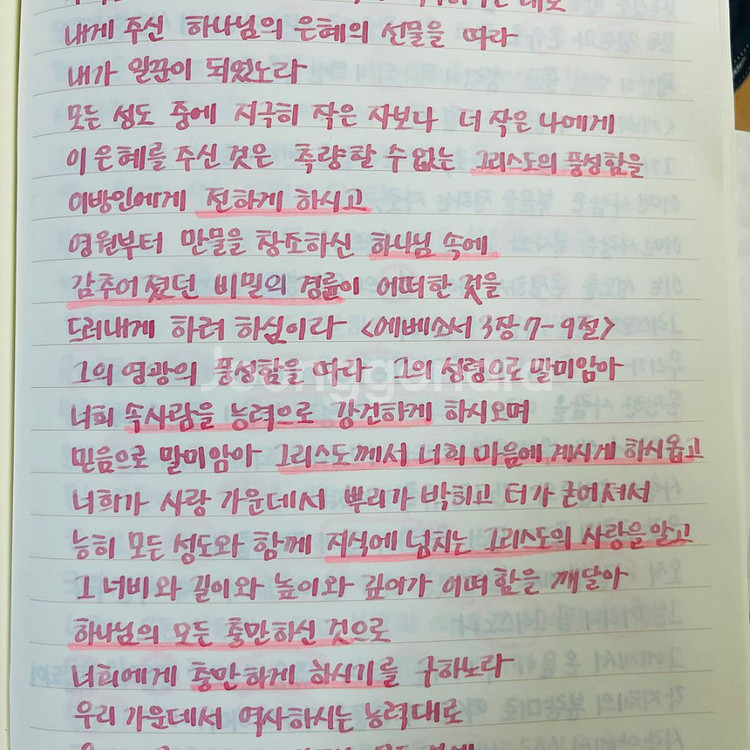 내게 주신 하나님의 은혜의 선물을 따라
내가 일꾼이 되었노라
모든 성도 중에 지극히 작은 자보다 더 작은 나에게
이 은혜를 주신 것은 측량할 수 없는 그리스도의 풍성함을
이방인에게 전하게 하시고
영원부터 만물을 창조하신 하나님 속에
감추어졌던 비밀의 경륜이 어떠한 것을
드러내게 하려 하심이라 <에베소서 3장 7-9절>
그의 영광의 풍성함을 따라 그의 성령으로 말미암아
너희 속사람을 능력으로 강건하게 하시오며
믿음으로 말미암아 그리스도께서 너희 마음에 계시게 하시옵고
너희가 사랑 가운데서 뿌리가 박히고 터가 굳어져서
능히 모든 성도와 함께 지식에 넘치는 그리스도의 사랑을 알고
그 너비와 길이와 높이와 깊이가 어떠함을 깨달아
하나님의 모든 충만하신 것으로
너희에게 충만하게 하시기를 구하노라
우리 가운데서 역사하시는 능력대로
Joonggonara